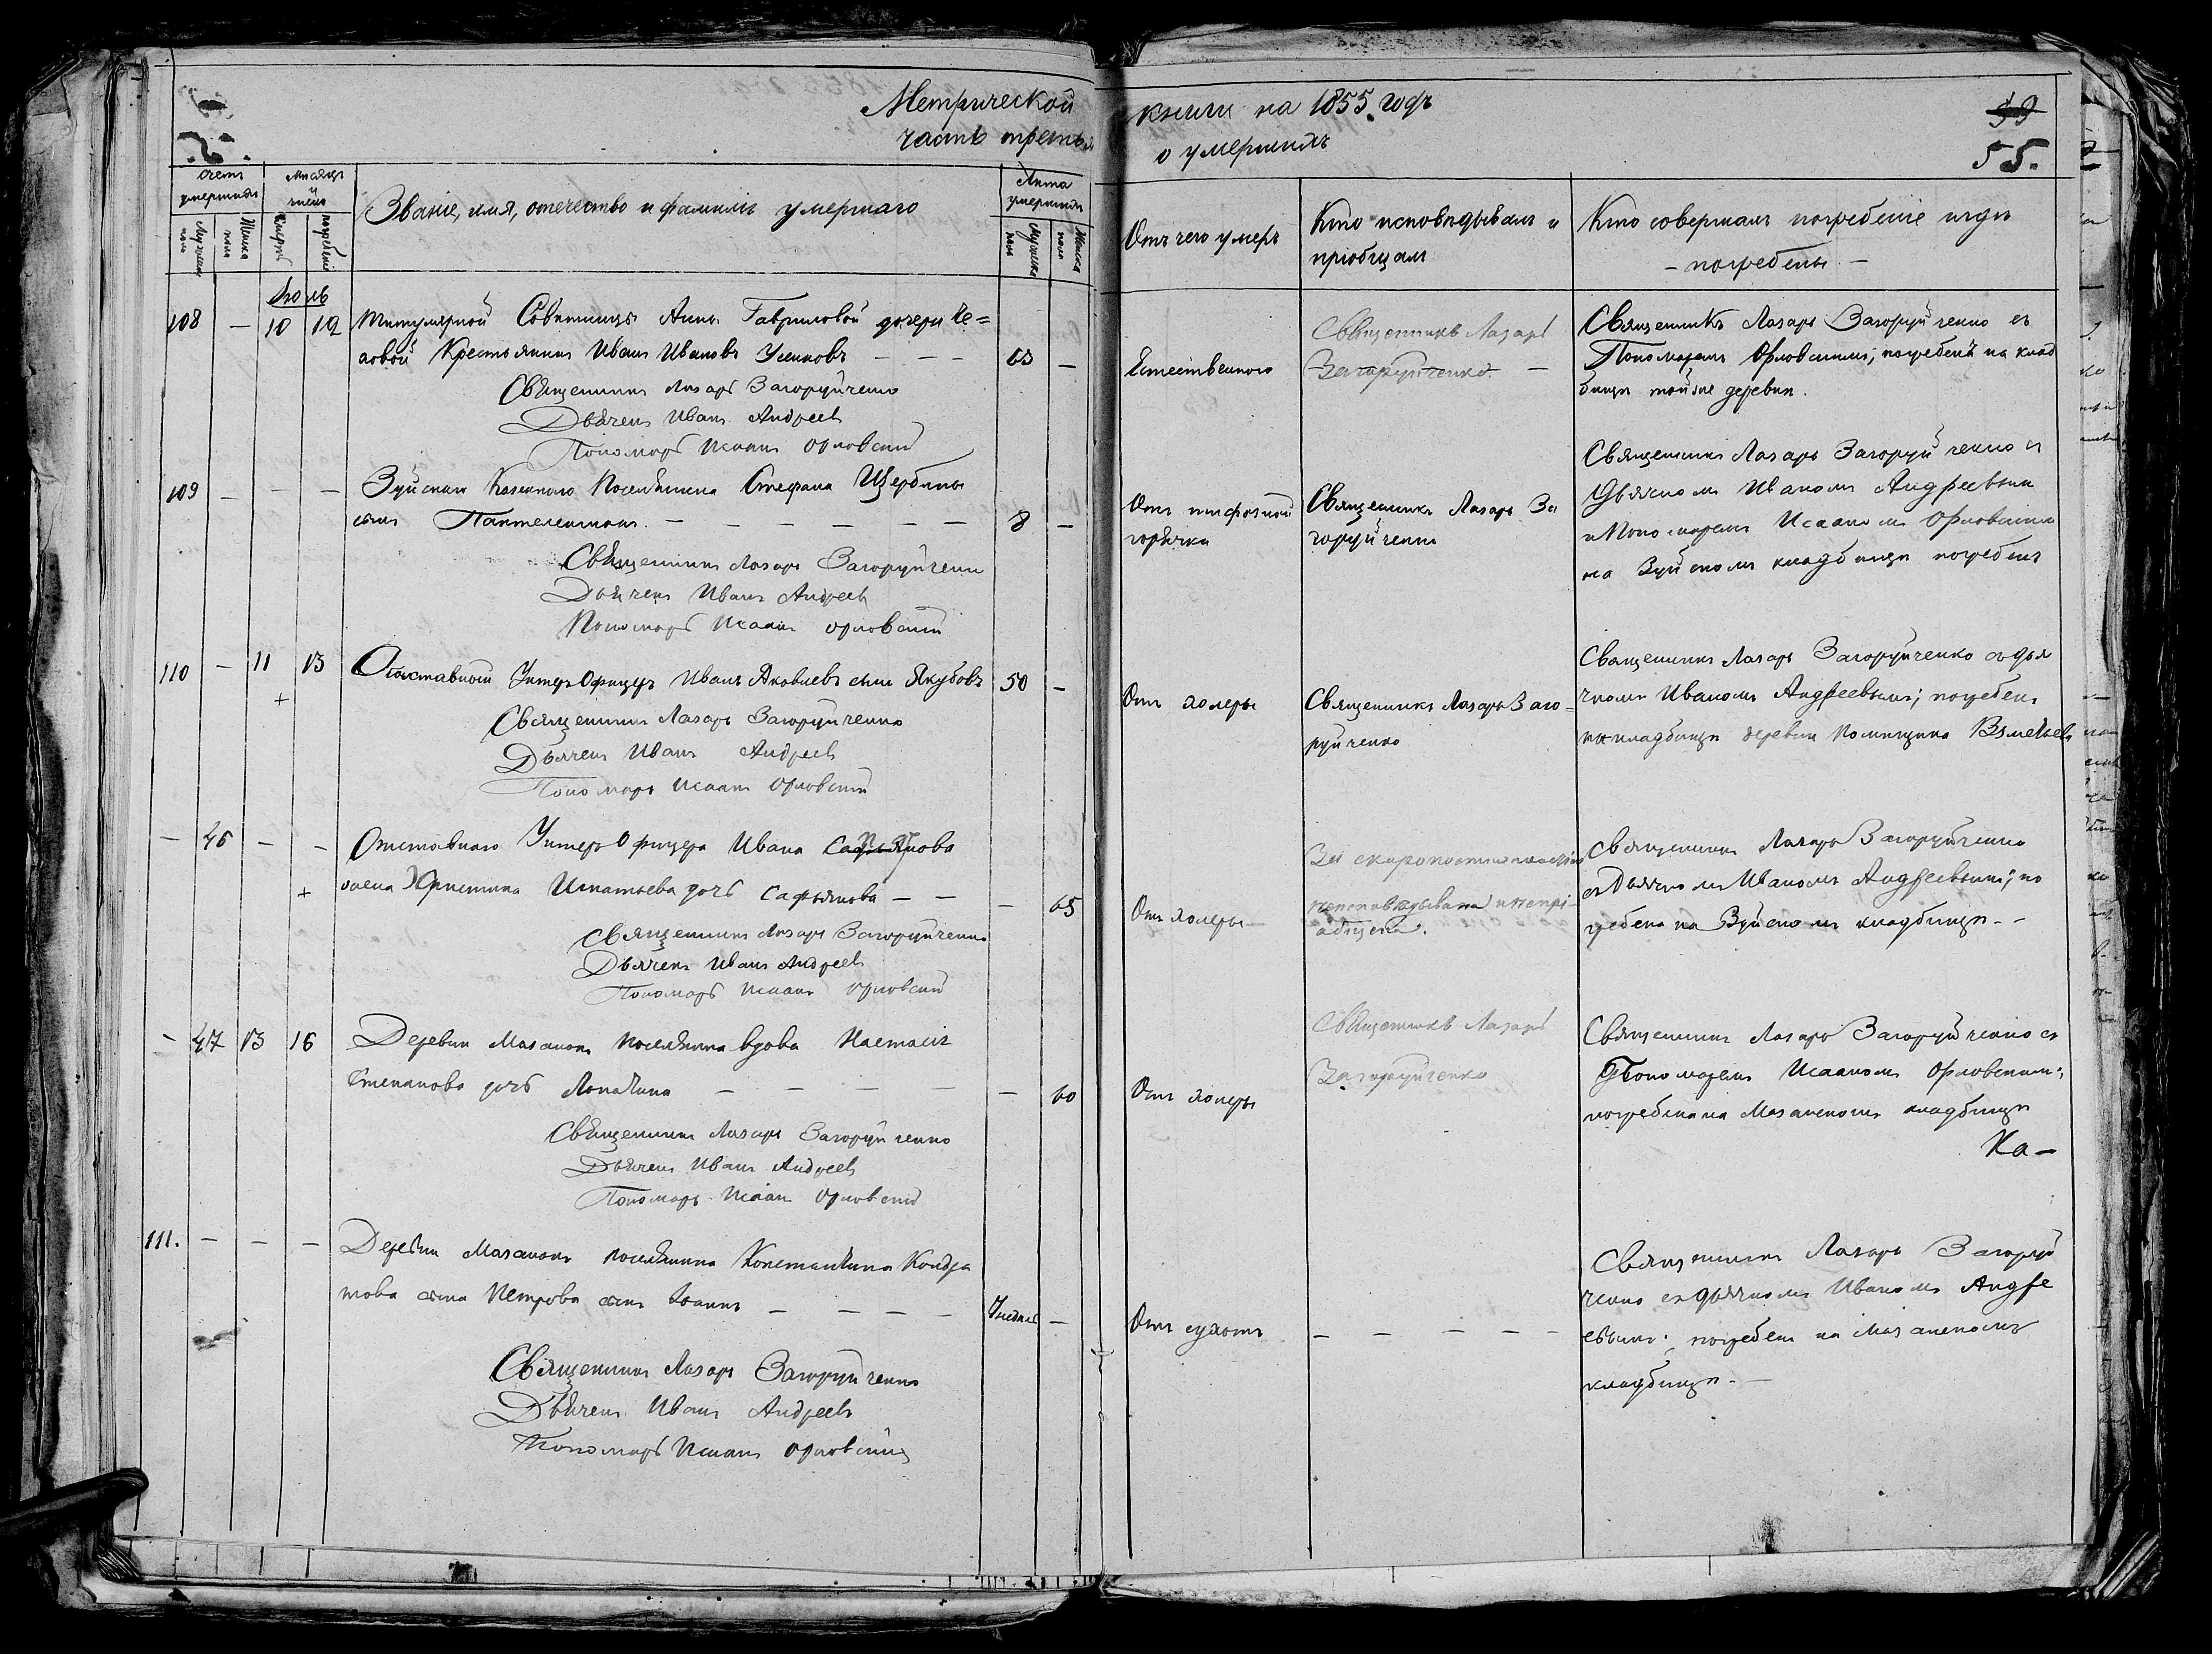 Метрической
часть третья
книги на 1855 годъ
о умершихъ
99
55.
Счетъ умершихъ
Мѣсяцъ и число
Званіе, имя, отечество и фамилія умершаго
Лѣта умершихъ
Отъ чего умеръ
Кто исповѣдывалъ и пріобщалъ
Кто совершалъ погребеніе и гдѣ погребены
Мужеска пола
Женска пола
Смерти
погребенія
Мужеска пола
Женска пола
Іюль
108 — 10 12 Титулярной Совѣтницы Анны Гавриловой дочери
Крестьянинъ Иванъ Ивановъ — — — 63 —
Священникъ Лазарь Загоруйченко
Дьячекъ Иванъ Андреевъ
Пономарь Исаакъ Орловскій
Естественно
Священникъ Лазарь
Загоруйченко —
Священникъ Лазарь Загоруйченко съ
Пономаремъ Орловскимъ; погребенъ на клад
бищѣ тойже деревни.
109 — — — Зуйскаго Казеннаго Поселянина Стефана Щербины
сынъ Пантелеимонъ. — — — — — — 8 —
Священникъ Лазарь Загоруйченко
Дьячекъ Иванъ Андреевъ
Пономарь Исаакъ Орловскій
Отъ тифозной
горячки
Священникъ Лазарь За
горуйченко
Священникъ Лазарь Загоруйченко съ
Дьячкомъ Иваномъ Андреевымъ
и Пономаремъ Исаакомъ Орловскимъ
на Зуйскомъ кладбищѣ погребенъ
110 — 11 13 Отставной Унтеръ Офицеръ Иванъ Яковлевъ сынъ Якубовъ 50 —
+
Священникъ Лазарь Загоруйченко
Дьячекъ Иванъ Андреевъ
Пономарь Исаакъ Орловскій
Отъ холеры
Священникъ Лазарь Заго-
руйченко
Священникъ Лазарь Загоруйченко съ дья
чкомъ Иваномъ Андреевымъ; погребенъ
на кладбищѣ деревни Помѣщика
— 46 — — Отставнаго Унтеръ Офицера Ивана
+ жена Христина Игнатьева дочь Сафьянова — — — 65
Священникъ Лазарь Загоруйченко
Дьячекъ Иванъ Андреевъ
Пономарь Исаакъ Орловскій
Отъ холеры
За скоропостижностію
неисповѣдывана и непрі-
общена.
Священникъ Лазарь Загоруйченко
съ Дьячкомъ Иваномъ Андреевымъ; по
гребена на Зуйскомъ кладбищѣ. -
— 47 13 16 Деревни Мазанки поселянина вдова Настасія
Степанова дочь Лопатина — — — — — 60
Священникъ Лазарь Загоруйченко
Дьячекъ Иванъ Андреевъ
Пономарь Исаакъ Орловскій
Отъ холеры
Священникъ Лазарь
Загоруйченко
Священникъ Лазарь Загоруйченко съ
Пономаремъ Исаакомъ Орловскимъ;
погребена на Мазанскомъ кладбищѣ
Ка-
111. — — — Деревни Мазанки поселянина Константина Кондра
това сына Петрова сынъ Іоаннъ — — — —
Священникъ Лазарь Загоруйченко
Дьячекъ Иванъ Андреевъ
Пономарь Исаакъ Орловскій
Отъ сухотъ
— — — — —
Священникъ Лазарь Загоруй
ченко съ дьячкомъ Иваномъ Андре
евымъ; погребенъ на Мазанскомъ
кладбищѣ. —